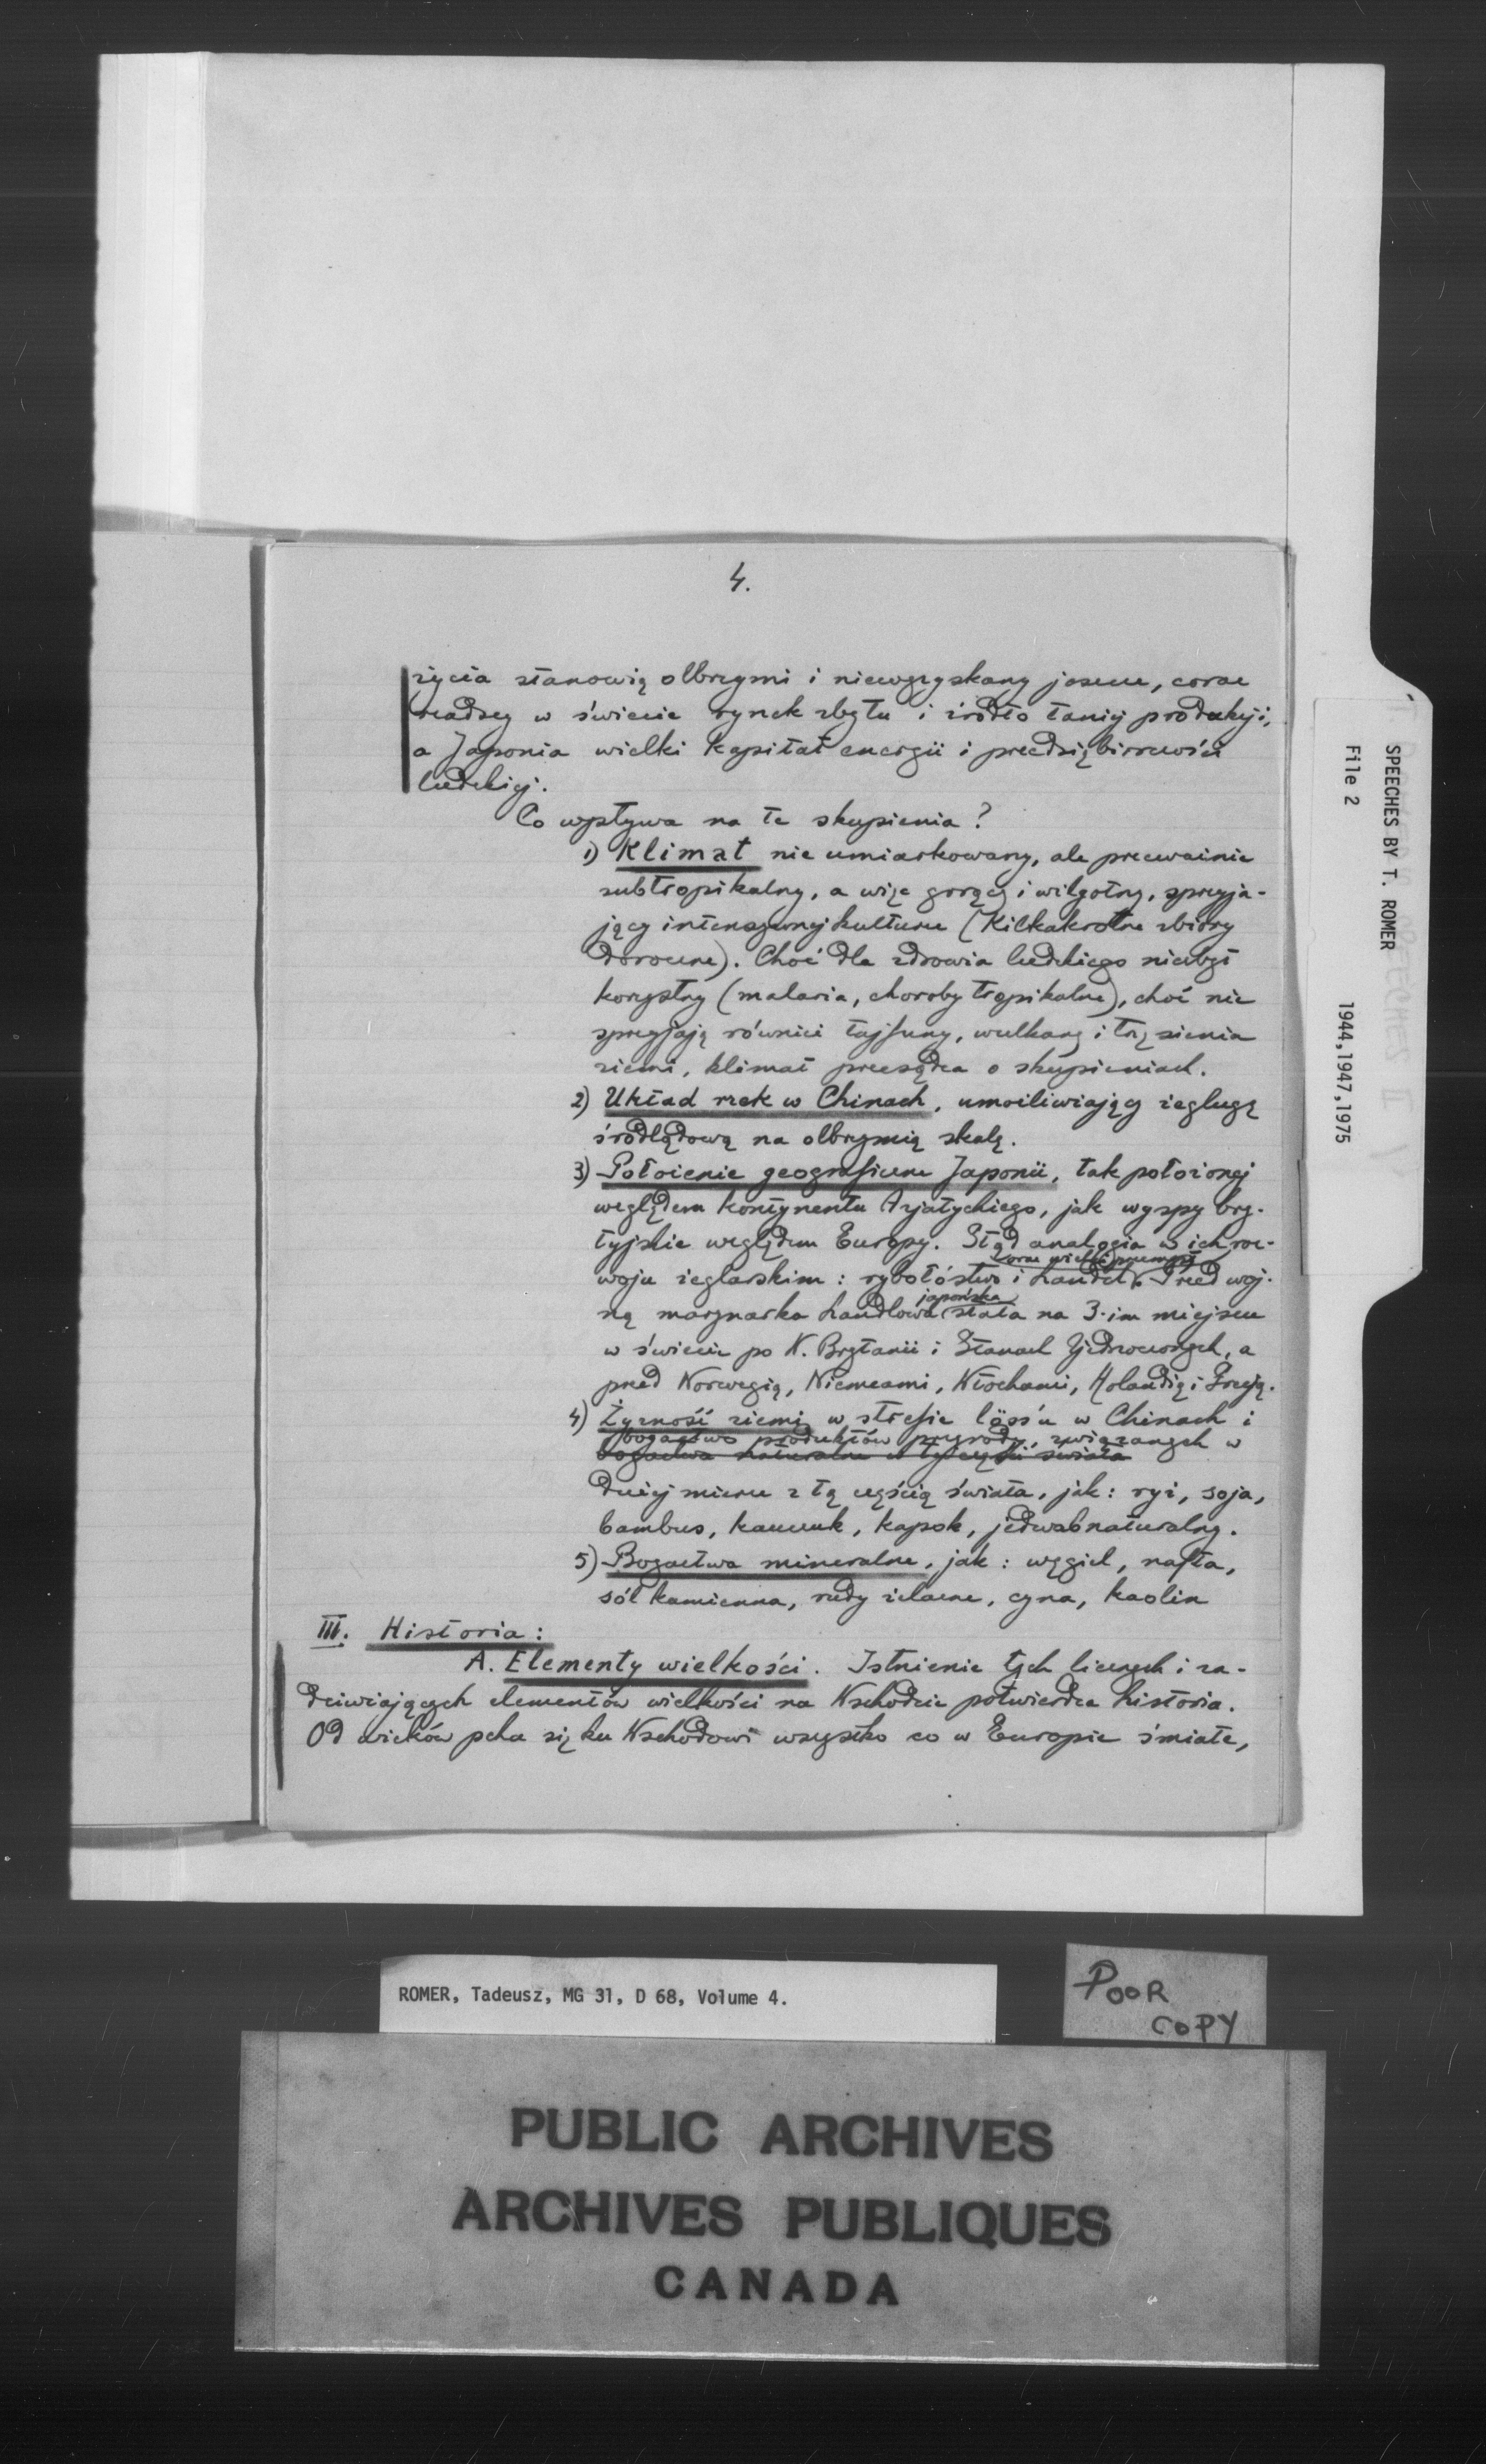 4.
życia stanowią olbrzymi i niewyzyskany jeszcze, coraz
rzadszy w świecie rynek zbytu i źródło taniej produkcji,
a Japonia wielki kapitał energii i przedsiębiorczości
ludzkiej.
Co wpływa na te skupienia?
1) Klimat nie umiarkowany, ale przeważnie
subtropikalny, a więc gorący i wilgotny, sprzyja-
jący intensywnej kulturze (kilkakrotne zbiory
doroczne). Choć dla zdrowia ludzkiego niezbyt
korzystny (malaria, choroby tropikalne), choć nie
sprzyjają również tajfuny, wulkany i trzęsienia
ziemi, klimat przesądza o skupieniach.
2) Układ rzek w Chinach, umożliwiający żeglugę
śródlądową na olbrzymią skalę.
3) Położenie geograficzne Japonii, tak położonej
względem kontynentu Azjatyckiego, jak wyspy bry-
tyjskie względem Europy. Stąd analogia w ich roz-
woju żeglarskim: rybołóstwo i handel oraz wielki przemysł. Przed woj-
ną marynarka handlowa japońska stała na 3-im miejscu
w świecie po W. Brytanii i Stanach Zjednoczonych, a
przed Norwegią, Niemcami, Włochami, Holandią i Grecją.
4) Żyzność ziemi w strefie löss'u w Chinach i
bogactwo produktów przyrody, związanych w
bogactwa naturalne w tej części świata
dużej mierze z tą częścią świata, jak: ryż, soja,
bambus, kauczuk, kapok, jedwab naturalny.
5) Bogactwa mineralne, jak: węgiel, nafta,
sól kamienna, rudy żelazne, cyna, kaolin
III. Historia:
A. Elementy wielkości. Istnienie tych licznych i za-
dziwiających elementów wielkości na Wschodzie potwierdza historia.
Od wieków pcha się ku Wschodowi wszystko co w Europie śmiałe,
SPEECHES BY T. ROMER
File 2 1944,1947,1975
ROMER, Tadeusz, MG 31, D 68, Volume 4.
POOR
COPY
PUBLIC ARCHIVES
ARCHIVES PUBLIQUES
CANADA